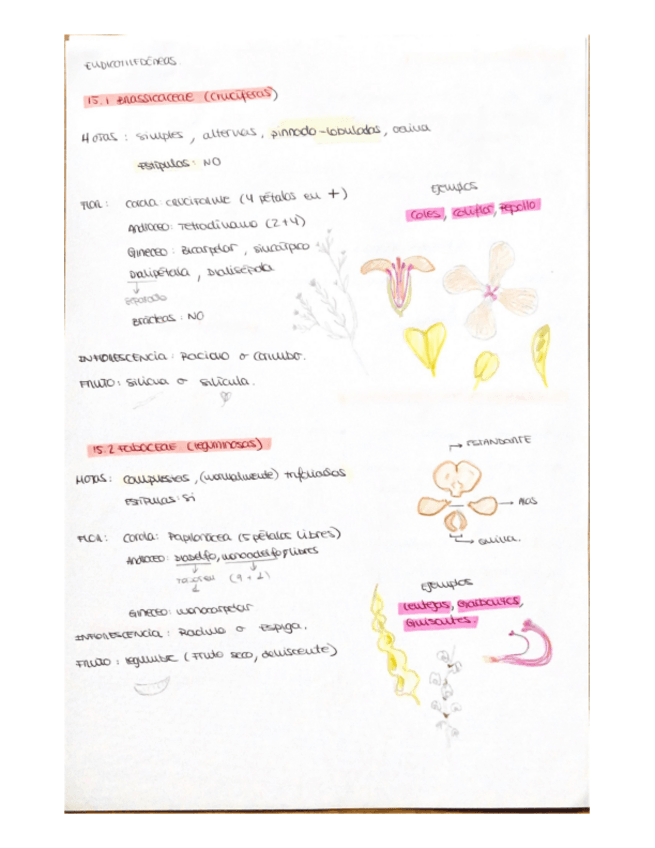 EUDICOTILEDÓNEAS.
15.1 BRASSICACEAE (CRUCÍFERAS)
HOJAS: simples, alternas, pinnado-lobuladas,
ESTÍPULAS: NO
FLOR: COROLA: CRUCIFORME (4 pétalos en +)
ANDROCEO: Tetradínamo (2+4)
GINECEO: Bicarpelar, sincárpico
Dialipétala, Dialisépala
↓
separado
BRÁCTEAS: NO
INFLORESCENCIA: Racimo o corimbo.
FRUTO: silicua o silícula.
EJEMPLOS
COLES, COLIFLOR, REPOLLO
15.2 FABACEAE (leguminosas)
HOJAS: compuestas, (normalmente) trifoliadas
ESTÍPULAS: Sí
FLOR: COROLA: Papilonácea (5 pétalos libres)
ANDROCEO: Diadelfo, monoadelfo y libres
(9 + 1)
GINECEO: monocarpelar
INFLORESCENCIA: Racimo o espiga.
FRUTO: legumbre (Fruto seco, dehiscente)
→ ESTANDARTE
→ ALAS
→ QUILLA.
EJEMPLOS
Lentejas, Garbanzos,
Guisantes.